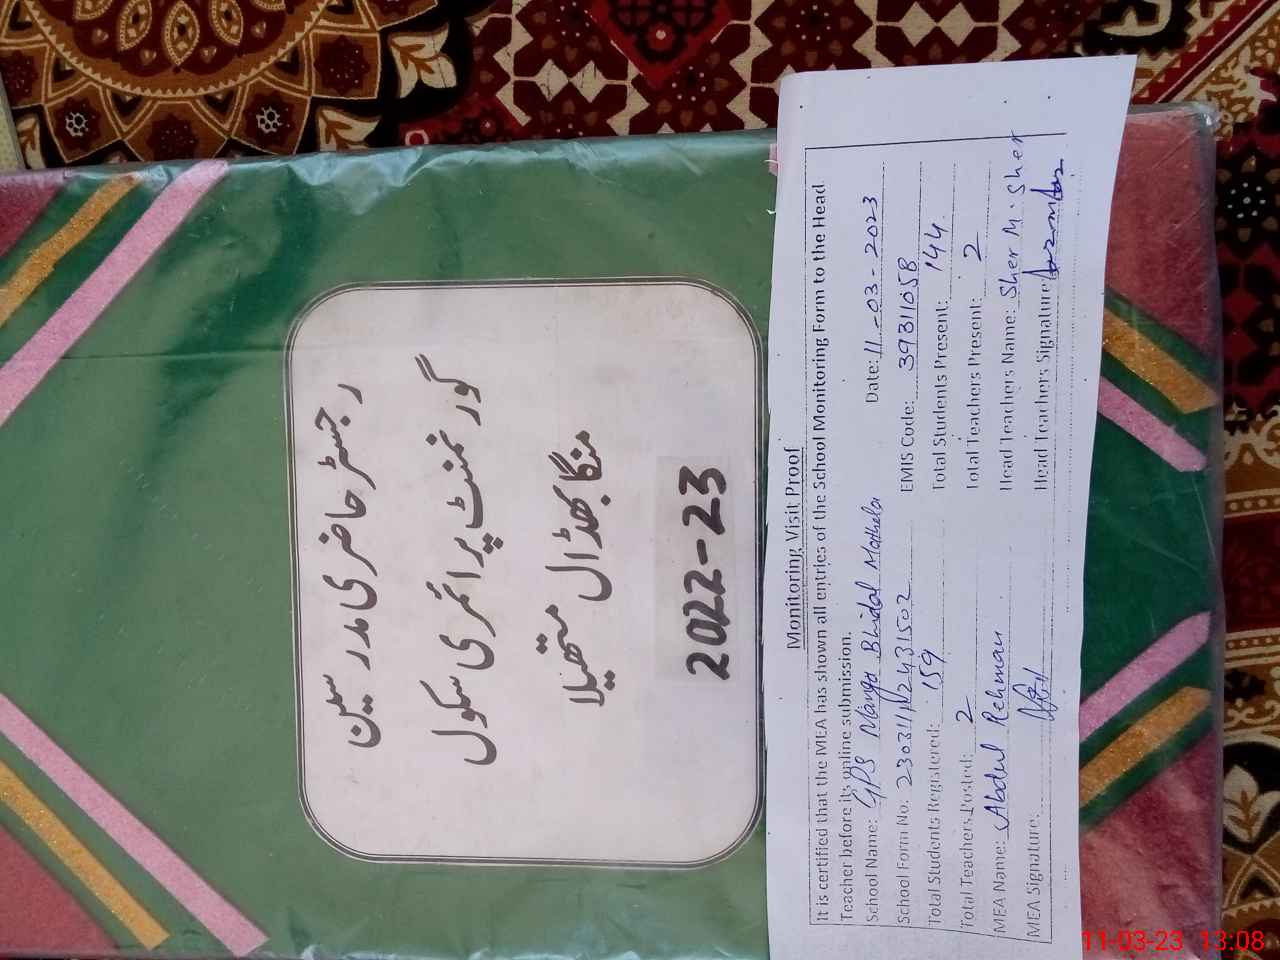 رجسٹر حاضری مدرسین
گورنمنٹ پرائمری سکول
منگا بھڈال متھیلا
2022-23
Monitoring Visit Proof
It is certified that the MEA has shown all entries of the School Monitoring Form to the Head
Teacher before its online submission.
School Name: GPS Manga Bhidal Mathela Date: 11-03-2023
School Form No. 230311112431502 EMIS Code: 39311058
Total Students Registered: 159 Total Students Present: 144
Total Teachers Posted: 2 Total Teachers Present: 2
MEA Name: Abdul Rehman Head Teachers Name: Sher M. Sher
MEA Signature: Head Teachers Signature:
11-03-23 13:08